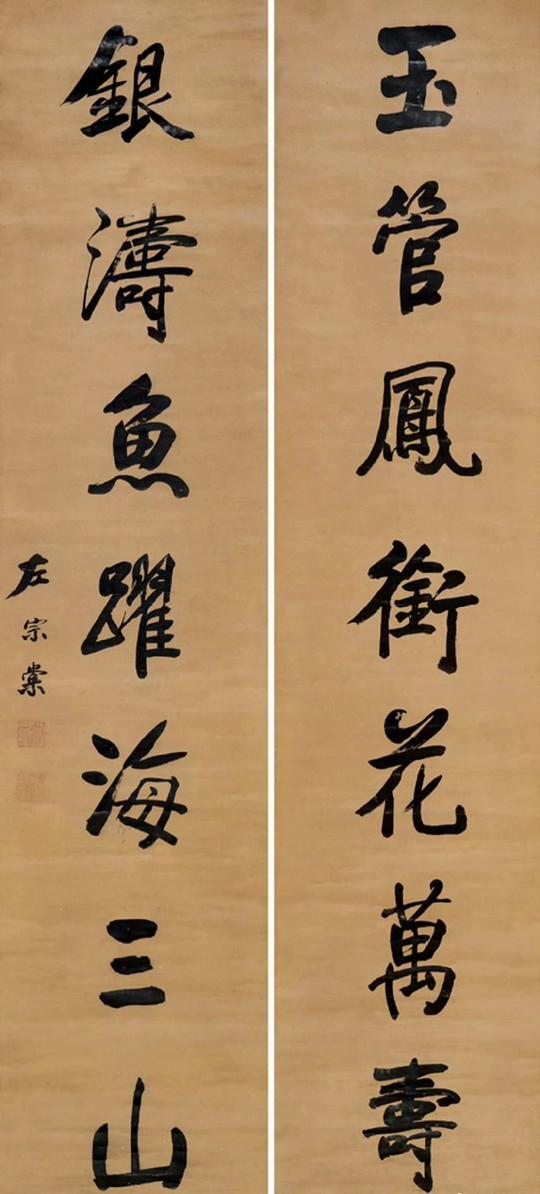 玉管鳳銜花萬壽
銀濤魚躍海三山
左宗棠